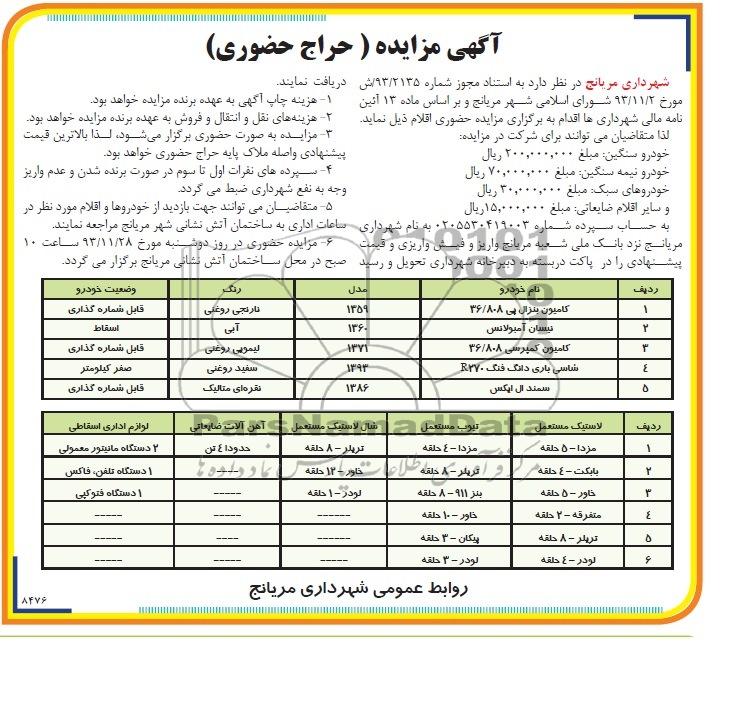 آگهی مزایده ( حراج حضوری)
شهرداری مریانج در نظر دارد به استناد مجوز شماره ۹۳/۲۱۳۵/ش
مورخ ۹۳/۱۱/۲ شورای اسلامی شهر مریانج و بر اساس ماده ۱۳ آئین
نامه مالی شهرداری ها اقدام به برگزاری مزایده حضوری اقلام ذیل نماید.
لذا متقاضیان می توانند برای شرکت در مزایده:
خودرو سنگین: مبلغ ۲۰۰,۰۰۰,۰۰۰ ریال
خودرو نیمه سنگین: مبلغ ۷۰,۰۰۰,۰۰۰ ریال
خودروهای سبک: مبلغ ۳۰,۰۰۰,۰۰۰ ریال
و سایر اقلام ضایعاتی: مبلغ ۱۵,۰۰۰,۰۰۰ریال
به حساب سپرده شماره ۰۲۰۵۵۳۰۴۱۹۰۰۳ به نام شهرداری
مریانج نزد بانک ملی شعبه مریانج واریز و فیش واریزی و قیمت
پیشنهادی را در پاکت دربسته به دبیرخانه شهرداری تحویل و رسید
دریافت نمایند.
۱- هزینه چاپ آگهی به عهده برنده مزایده خواهد بود.
۲- هزینه‌های نقل و انتقال و فروش به عهده برنده مزایده خواهد بود.
۳- مزایده به صورت حضوری برگزار می‌شود، لذا بالاترین قیمت
پیشنهادی واصله ملاک پایه حراج حضوری خواهد بود.
۴- سپرده های نفرات اول تا سوم در صورت برنده شدن و عدم واریز
وجه به نفع شهرداری ضبط می گردد.
۵- متقاضیان می توانند جهت بازدید از خودروها و اقلام مورد نظر در
ساعات اداری به ساختمان آتش نشانی شهر مریانج مراجعه نمایند.
۶- مزایده حضوری در روز دوشنبه مورخ ۹۳/۱۱/۲۸ ساعت ۱۰
صبح در محل ساختمان آتش نشانی مریانج برگزار می گردد.
ردیف نام خودرو مدل رنگ وضعیت خودرو
۱ کامیون بنزال پی ۳۶/۸۰۸ ۱۳۵۹ نارنجی روغنی قابل شماره گذاری
۲ نیسان آمبولانس ۱۳۶۰ آبی اسقاط
۳ کامیون کمپرسی ۳۶/۸۰۸ ۱۳۷۱ لیمویی روغنی قابل شماره گذاری
۴ شاسی باری دانگ فنگ R۲۷۰ ۱۳۹۳ سفید روغنی صفر کیلومتر
۵ سمند ال ایکس ۱۳۸۶ نقره‌ای متالیک قابل شماره گذاری
ردیف لاستیک مستعمل تیوب مستعمل شال لاستیک مستعمل آهن آلات ضایعاتی لوازم اداری اسقاطی
۱ مزدا - ۵ حلقه مزدا - ۴ حلقه تریلر - ۸ حلقه حدودا ۴ تن ۲ دستگاه مانیتور معمولی
۲ بابکت - ۴ حلقه تریلر - ۸ حلقه خاور - ۱۲ حلقه ---- ۱ دستگاه تلفن، فاکس
۳ خاور - ۵ حلقه بنز ۹۱۱ - ۸ حلقه لودر - ۱ حلقه ----- ۱ دستگاه فتوکپی
۴ متفرقه - ۲ حلقه خاور - ۱۰ حلقه ------ ----- -----
۵ تریلر - ۸ حلقه پیکان - ۳ حلقه ------ ---- -----
۶ لودر - ۴ حلقه لودر - ۳ حلقه ------ ----- -----
روابط عمومی شهرداری مریانج
۸۴۷۶
ParsNamadData
مرکز فرآوری اطلاعات پارس نماد داده ها